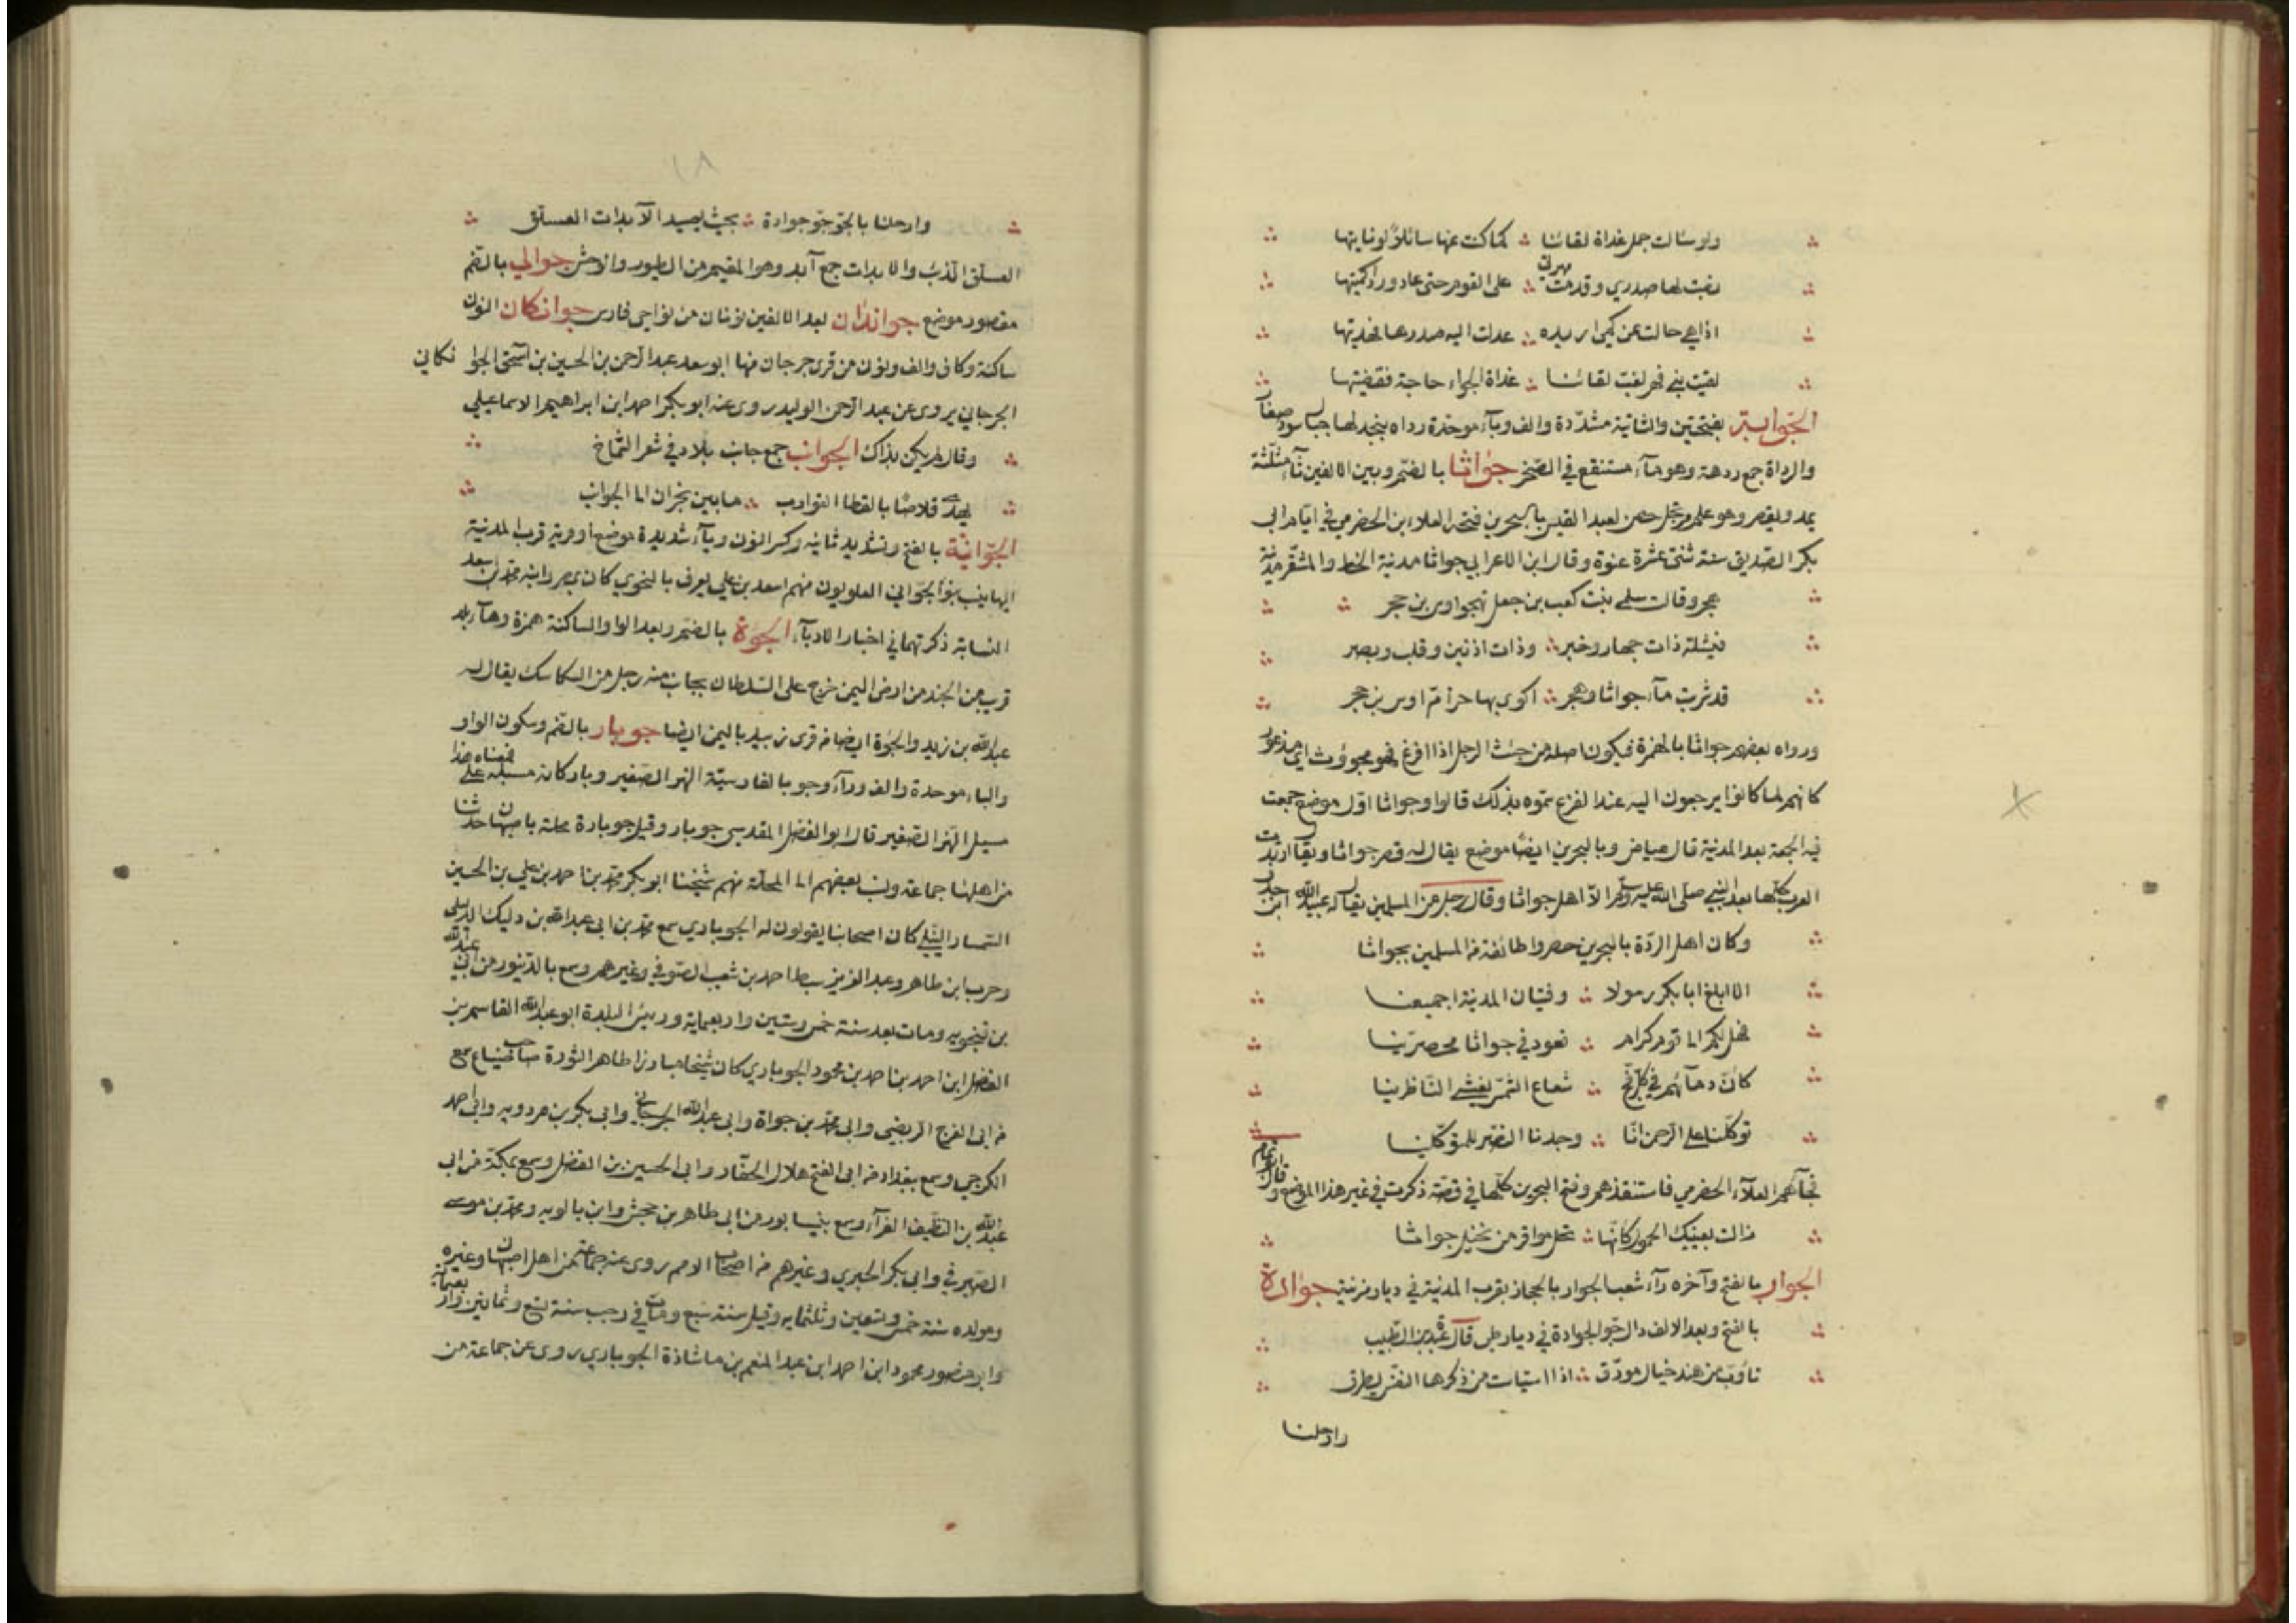 ولو سالت جمل غداة لقائنا كما كنت عنها سائلا لو نايتها
مهري
رفت لها صدري وقدمت على القوم حتى عاد ورد اكميتها
اذا هي حالت عن كمي اريده عدلت اليه صدرها فهديتها
لقيت بني فهر لغب لقائنا غداة الجواء حاجة فقضيتها
الجوابة بفتحتين والثانية مشددة والف وباء موحدة رداه بنجد لها جبال سود صغار
والرداة جمع ردهة وهو ماء مستنقع في الصخر جواثا بالضم وبين الالفين ثاء مثلثة
يمد ويقصر وهو علم مرتجل حصن لعبد القيس بالبحرين فتحه العلاء ابن الحضرمي في ايام ابي
بكر الصديق سنة ثنتى عشرة عنوة وقال ابن الاعرابي جواثا مدنية الخط والمشقر مدنية
هجر وقالت سلمى بنت كعب بن جعل تهجو اوس بن حجر
فيشلة ذات جهار وخبر وذات اذنين وقلب وبصر
قد شربت ماء جواثا وهجر اكوي بها حرام اوس بن حجر
ورواه بعضهم جواثا بالهمزة فيكون اصله من جئث الرجل اذا افزع فهو مجوؤث اي مذعور
كانهم لما كانوا يرجعون اليه عند الفزع سموه بذلك قالوا وجواثا اول موضع جمعت
فيه الجمعة بعد المدنية قال عياض وبالبحرين ايضا موضع يقال له قصر جواثا ويقال ارتدت
العرب كلها بعد النبي صلى الله عليه وسلم الا اهل جواثا وقال رجل من المسلمين يقال له عبد الله ابن حذل
وكان اهل الردة بالبحرين حصروا طائفة من المسلمين بجواثا
الا ابلغ ابا بكر رسولا وفتيان المدنية اجمعينا
فهل لكم الى قوم كرام قعود في جواثا محصرينا
كان دماءهم في كل فج شعاع الشمس يغشى الناظرينا
توكلنا على الرحمن انا وجدنا النصر للمتوكلينا
فجاءهم العلاء الحضرمي فاستنقذهم وفتح البحرين كلها في قصة ذكرت في غير هذا الموضع وقال ابو تمام
زالت بعينيك الحمول كانها نخل مواقر من نخيل جواثا
الجوار بالفتح وآخره راء شعب الجوار بالحجاز بقرب المدنية في ديار مزنية جوادة
بالفتح وبعد الالف دال جو الجوادة في ديار طي قال عبدة بن الطبيب
تاوب من هند خيال مورق اذا استيات من ذكرها النفس يطرق
وارحلنا
وارحلنا بالجو جو جوادة بحيث يصيد الآبدات العسلق
العسلق الذئب والابدات جمع آبد وهو المقيم من الطيور والوحش جوالي بالضم
مقصور موضع جواندان بعد الالفين نونان من نواحي فارس جوانكان النون
ساكنة وكاف والف ونون من قرى جرجان منها ابو سعد عبد الرحمن بن الحسين بن اسحق الجوا نكاني
الجرجاني يروى عن عبد الرحمن الوليد روى عنه ابو بكر احمد ابن ابراهيم الاسماعيلي
وقال لم يكن بذاك الجوانب جمع جانب بلاد في شعر الشماخ
يهدى قلاصا بالقطا القوارب ما بين نجران الى الجوانب
الجوانية بالفتح وتشديد ثانيه وكسر النون وياء شديدة موضع او قرية قرب المدنية
اليها ينسب بنو الجواني العلويون منهم اسعد بن علي يعرف بالنحوي كان بمصر وابنه محمد بن اسعد
النسابة ذكرتهما في اخبار الادباء الجؤة بالضم وبعد الواو الساكنة همزة وهاء بلد
قرب من الجند من ارض اليمن خرج على السلطان بجانب منه رجل من السكاسك يقال له
عبد الله بن زيد والجؤة ايضا من قرى زبيد باليمن ايضا جوبار بالضم وسكون الواو
والباء موحدة والف وراء وجو بالفارسية النهر الصغير وبار كانه مسيله فمعناه على هذا
مسيل النهر الصغير قال ابو الفضل المقدسي جوبار وقيل جوبارة محلة باصبهان حدثنا
من اهلها جماعة ونسب بعضهم الى المحلة منهم شيخنا ابو بكر محمد بن احمد بن علي بن الحسين
السمسار النبلي كان اصحابنا يقولون له الجوباري سمع محمد بن ابى عبد الله بن دليك الدبيلي
وحرب ابن طاهر وعبد العزيز سبط احمد بن شعيب الصوفي وغيرهم وسمع بالدينور من ابي عبد الله
بن فنجويه ومات بعد سنة خمس وستين واربعماية ورئيس البلدة ابو عبد الله القاسم بن
الفضل ابن احمد بن احمد بن محمود الجوباري كان شيخا مبارزا ظاهر الثروة صاحب ضياع سمع
من ابى الفرج الربضي وابى محمد بن جواة وابى عبد الله الجرجاني وابى بكر بن مردويه وابى احمد
الكرجي وسمع ببغداد من ابى الفتح هلال الحفار وابى الحسين بن الفضل وسمع بمكة من ابى
عبد الله بن النظيف الفراء وسمع بنيسابور من ابى طاهر بن محمش وابن بالويه ومحمد بن موسى
الصيرفي وابى بكر الحيري وغيرهم من اصحاب الاصم روى عنه جماعة من اهل اصبهان وغيره
ومولده سنة خمس وتسعين وثلثمايه وقيل سنة سبع ومات في رجب سنة تسع وثمانين واربعمائة
وابو منصور محمود ابن احمد ابن عبد المنعم بن ماشاذة الجوباري يروى عن جماعة من